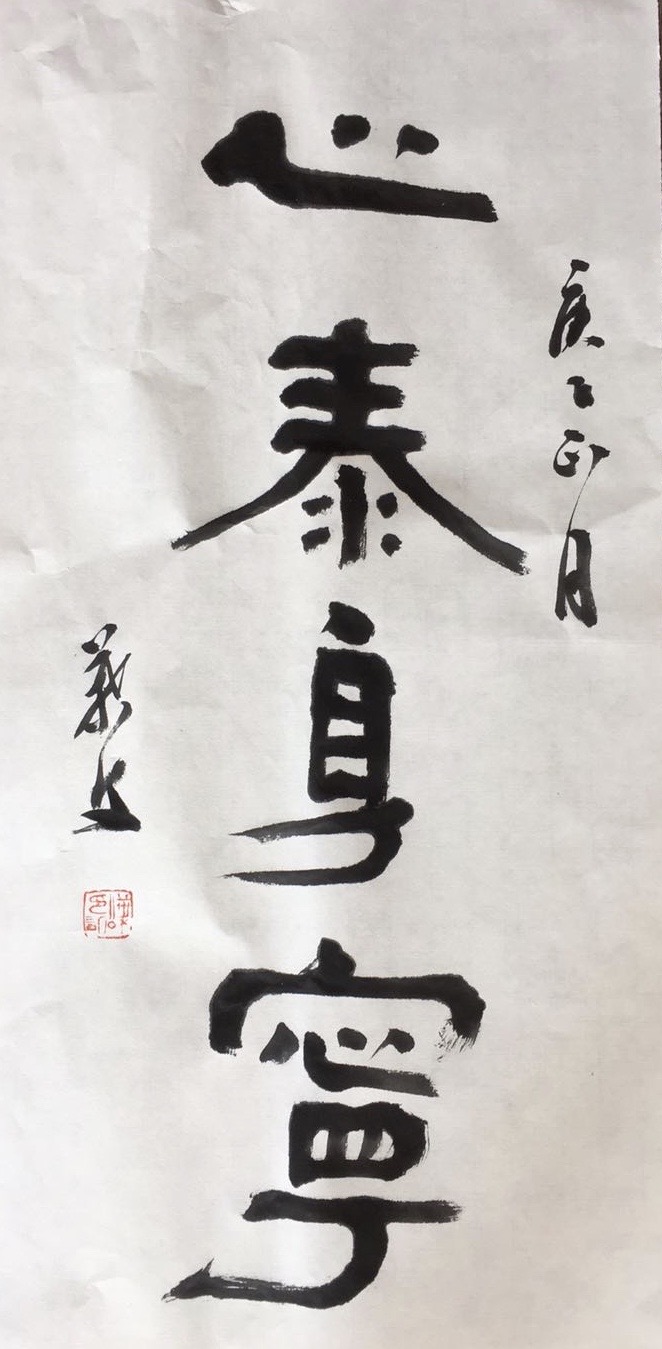 心泰身寧
庚子正月